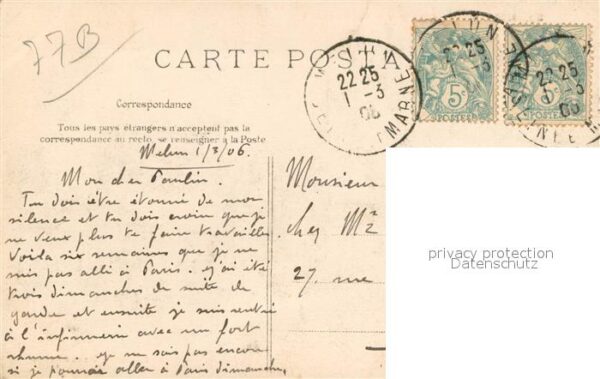 77B
CARTE POSTA
MELUN
22 25
1-3
06
SEINE ET MARNE
5c
POSTES
Correspondance
Tous les pays étrangers n'acceptent pas la
correspondance au recto, se renseigner à la Poste
Melun 1/3/06.
Mon cher Paulin.
Tu dois être étonné de mon
silence et tu dois croire que je
ne veux plus te faire travailler.
Voila six semaines que je ne
suis pas allé à Paris. J'ai été
trois dimanches de suite de
garde et ensuite je suis rentré
à l'infirmerie avec un fort
rhume. Je ne sais pas encore
si je pourrai aller à Paris dimanche,
Monsieur
chez
27, rue
privacy protection
Datenschutz